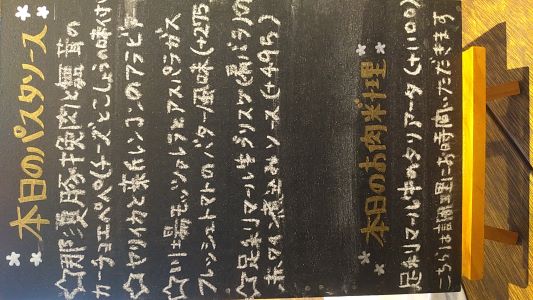 本日のパスタソース
☆那須豚挽肉と舞茸の
カーチョエペペ(チーズとこしょうの味付け)
☆ヤリイカと赤パレンコンのアラビアータ
☆川場モッツァレラとアスパラガス
フレッシュトマトのバター風味(+275)
☆足利マール牛ラリスケ(肩バラ)の
赤ワイン煮込みソース(+495)
本日のお肉料理
足利マール牛のタリアータ(+1100)
こちらは調理にお時間いただきます